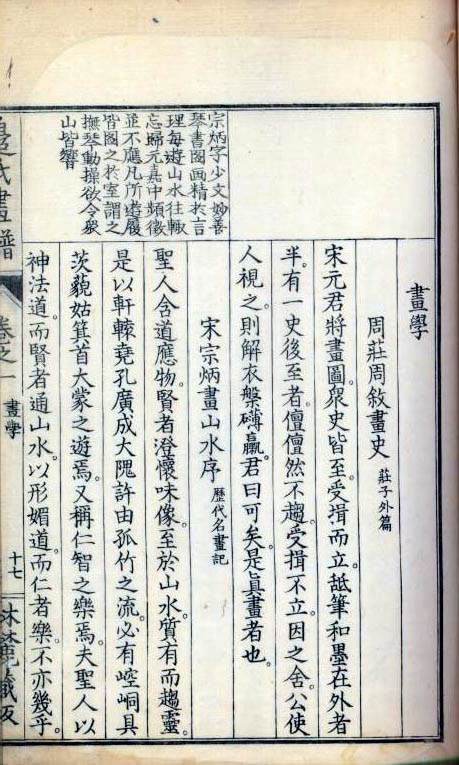 畫學
周莊周敘畫史 莊子外篇
宋元君將畫圖。衆史皆至。受揖而立。舐筆和墨。在外者
半。有一史後至者。儃儃然不趨。受揖不立。因之舍。公使
人視之。則解衣槃礴臝。君曰。可矣。是眞畫者也。
宋宗炳畫山水序 歷代名畫記
聖人含道應物。賢者澄懷味像。至於山水。質有而趣靈。
是以軒轅堯孔廣成大隗許由孤竹之流。必有崆峒具
茨藐姑箕首大蒙之遊焉。又稱仁智之樂焉。夫聖人以
神法道。而賢者通山水。以形媚道。而仁者樂。不亦幾乎。
宗炳字少文妙善
琴書圖画精於言
理每遊山水往輒
忘歸元嘉中頻徵
並不應凡所遊履
皆圖之於室謂之
撫琴動操欲令衆
山皆響
氏畫譜
卷之一
畫學
十七
沐鹿藏版